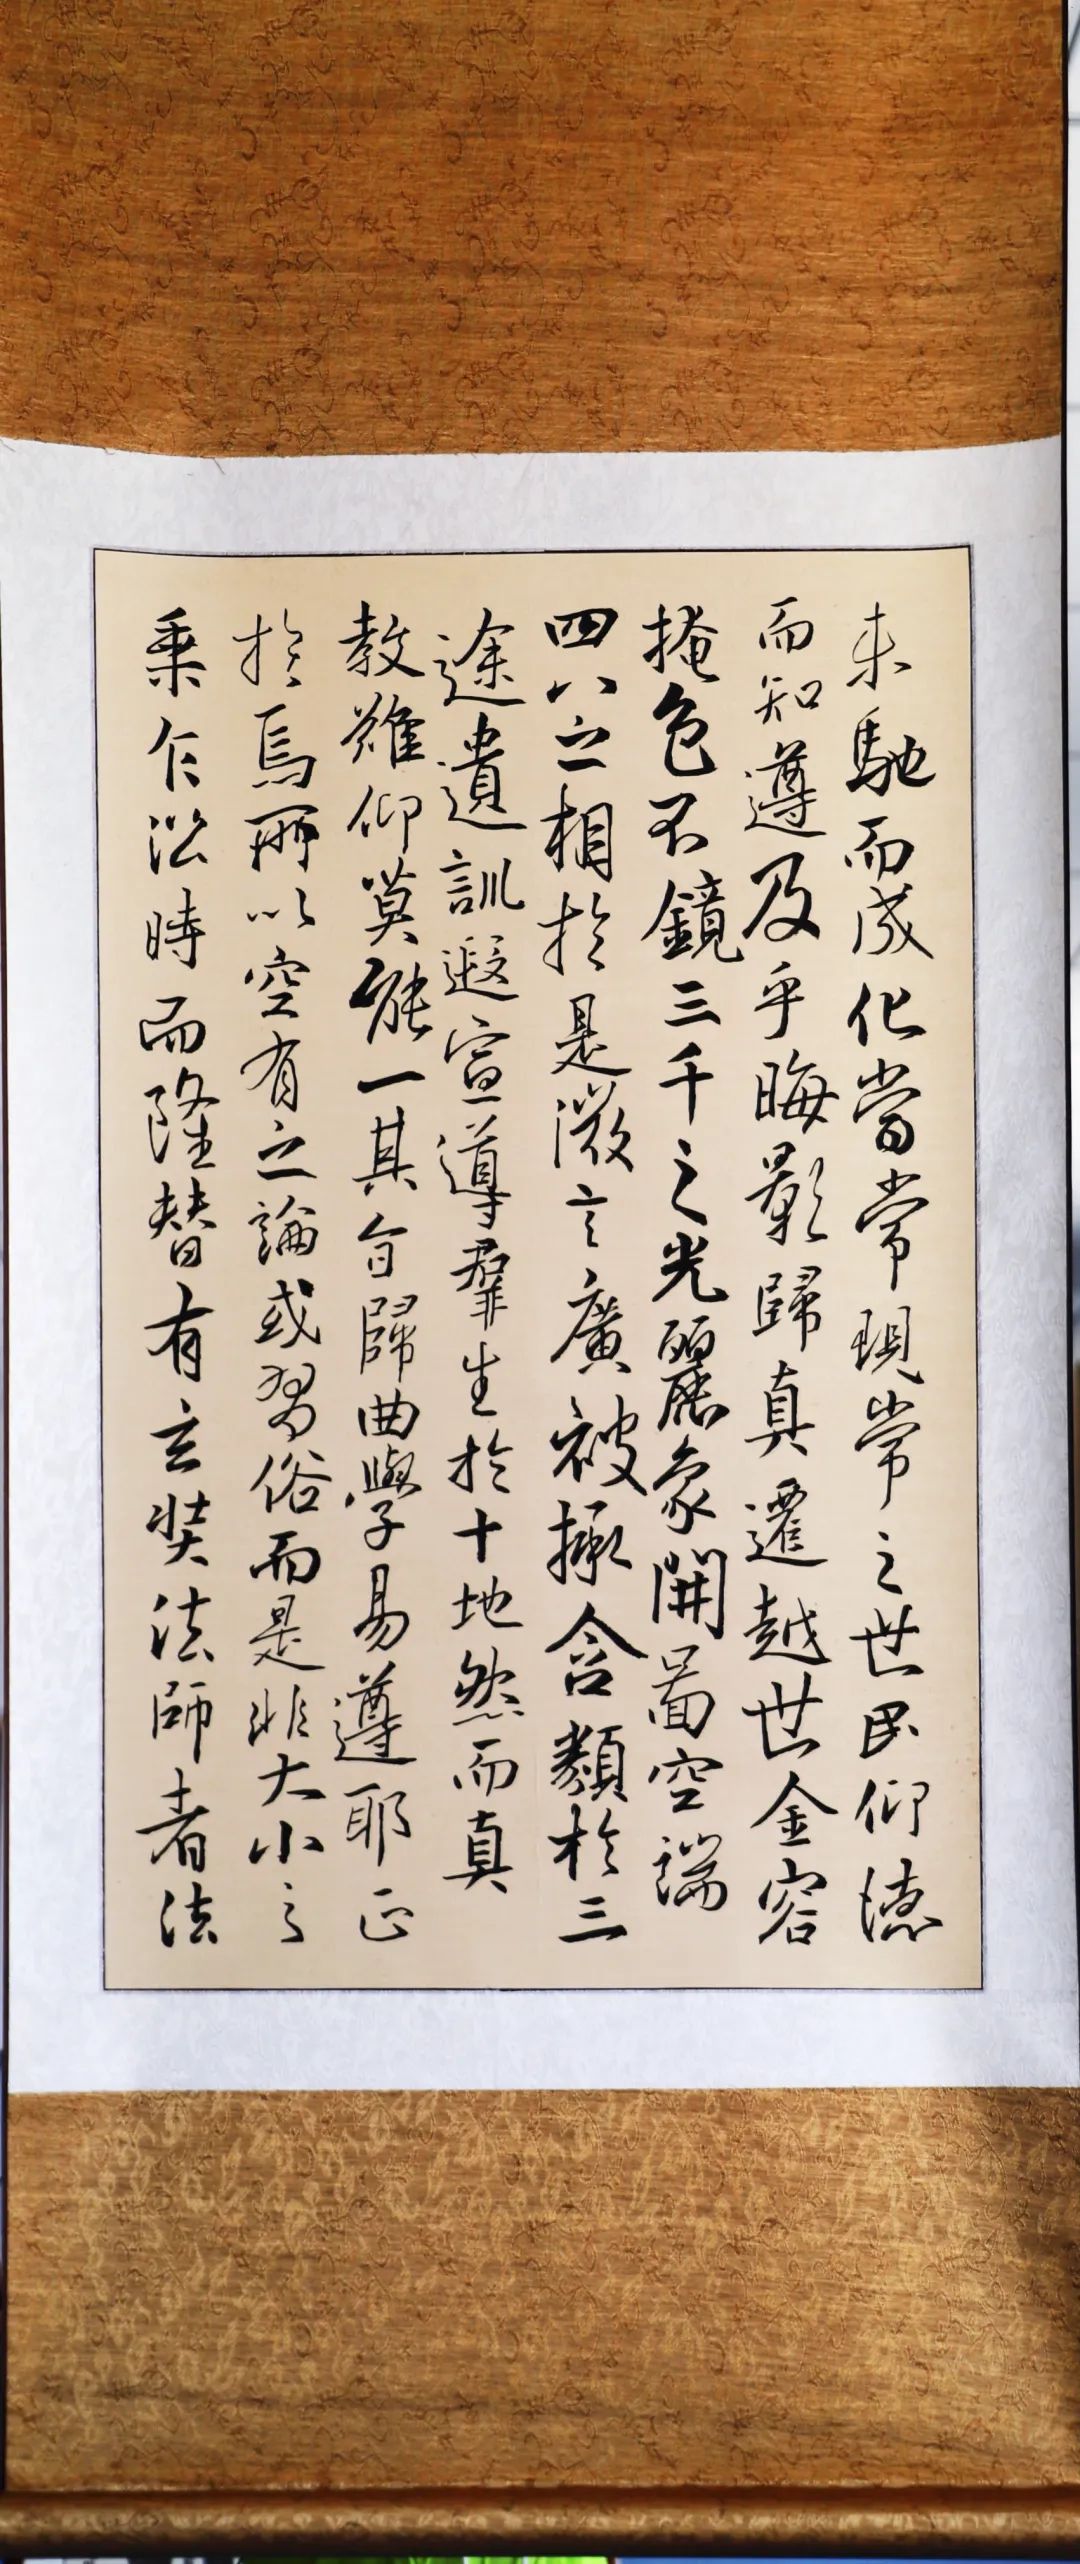 未馳而成化當常現常之世民仰德
而知遵及乎晦影歸真遷越世金容
掩色不鏡三千之光麗象開圖空端
四八之相於是微言廣被拯含類於三
途遺訓遐宣導羣生於十地然而真
教難仰莫能一其旨歸曲學易遵耶正
於焉所以空有之論或習俗而是非大小之
乘乍沿時而隆替有玄奘法師者法